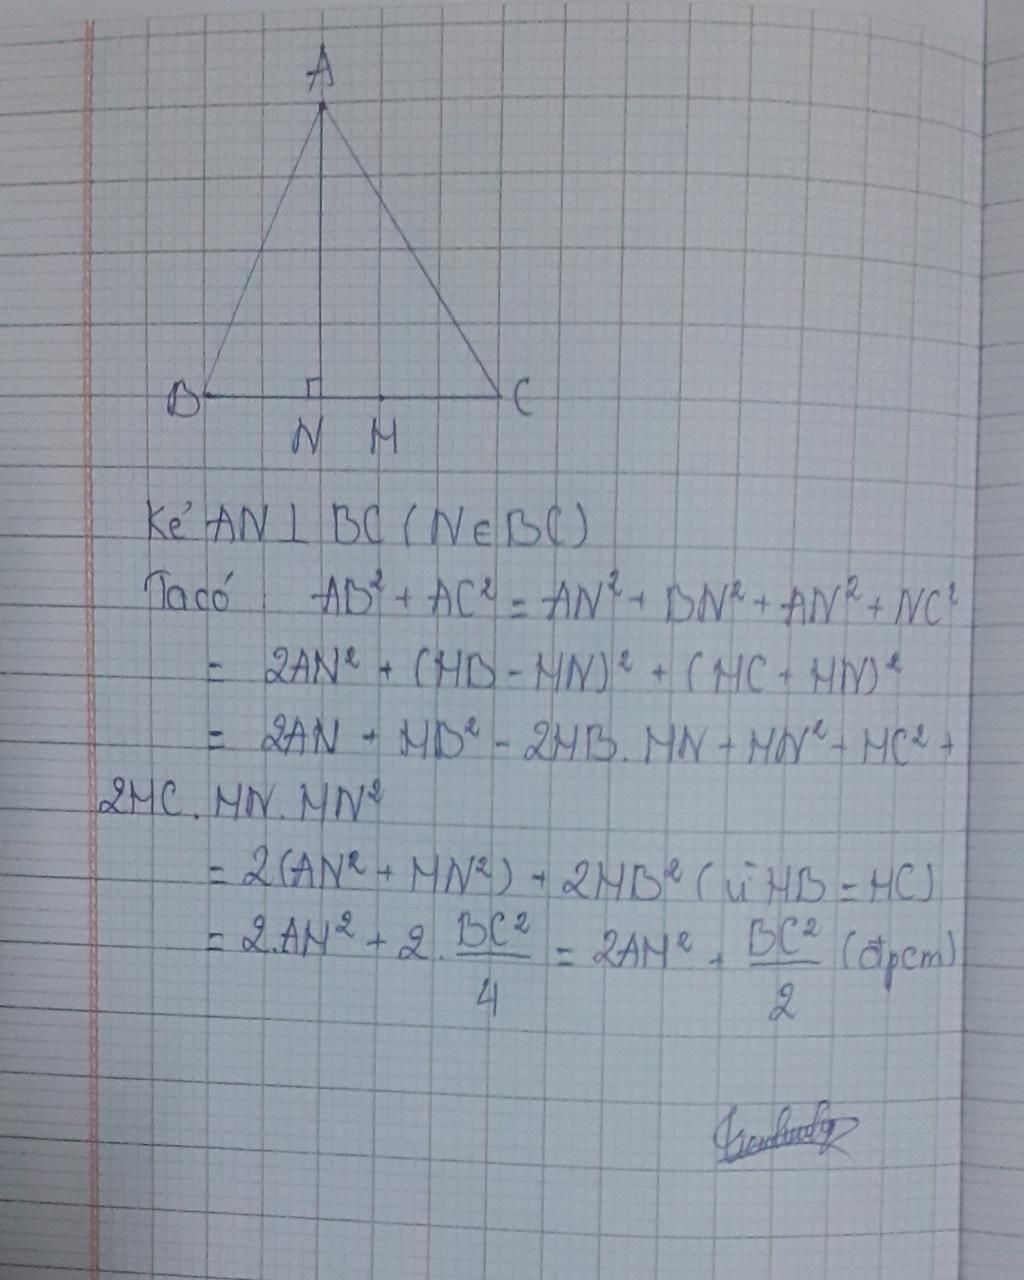 A
B
C
N M
Kẻ AN ⊥ BC (N ∈ BC)
Ta có AB² + AC² = AN² + BN² + AN² + NC²
= 2AN² + (MB - MN)² + (MC + MN)²
= 2AN + MB² - 2MB. MN + MN² + MC² +
2MC. MN. MN²
= 2(AN² + MN²) + 2MB² (vì MB = MC)
= 2.AM² + 2. BC²/4 = 2AM² + BC²/2 (đpcm)